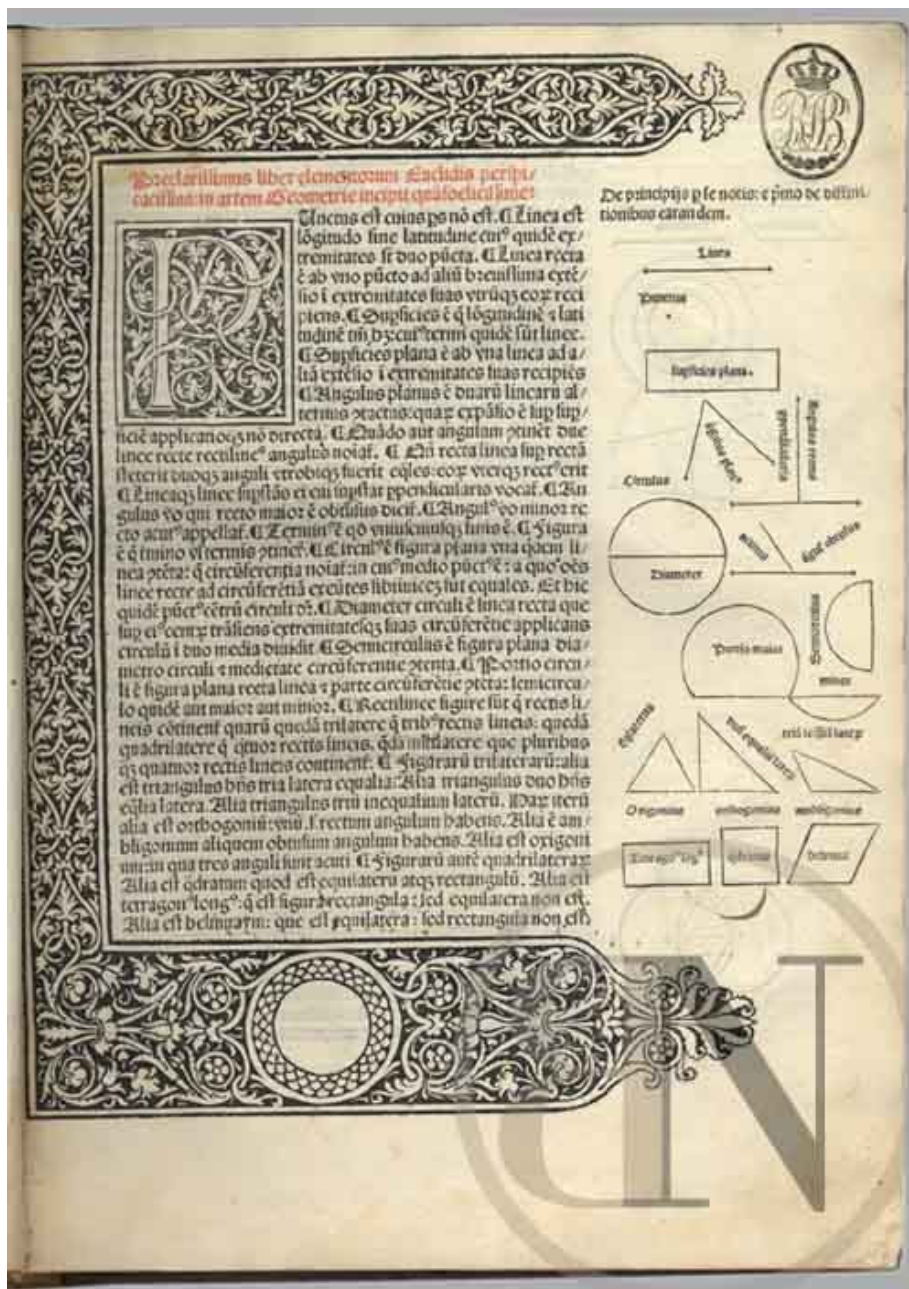 Preclarissimus liber elementorum Euclidis perspi/
cacissimi: in artem Geometrie incipit quāfoelicissime:
PUnctus est cuius ps nō est. ¶ Linea est
lōgitudo sine latitudine cuiꝰ quidē ex/
tremitates sūt duo pūcta. ¶ Linea recta
ē ab vno pūcto ad aliū breuissima extē/
sio ī extremitates suas vtrūqꝫ eoꝝ reci
piens. ¶ Supficies ē q̄ lōgitudinē ⁊ lati
tudinē tm̄ hꝫ: cuiꝰ termi quidē sūt linee.
¶ Supficies plana ē ab vna linea ad a/
liā extēsio ī extremitates suas recipiēs
¶ Angulus planus ē duarū linearū al/
ternus ꝯtactus: quaꝝ expāsio ē sup sup/
ficiē applicatioqꝫ nō directa. ¶ Quādo aut angulum ꝯtinēt due
linee recte rectilineꝰ angulus noīaf. ¶ Qn̄ recta linea sup rectā
steterit duoqꝫ anguli vtrobiqꝫ fuerīt eq̄les: eoꝝ vterqꝫ rectꝰ erit
¶ Lineaqꝫ linee supstās ei cui supstat ppendicularis vocaf. ¶ An
gulus vo qui recto maior ē obtusus dicif. ¶ Angulꝰ vo minor re
cto acutꝰ appellaf. ¶ Terminꝰ ē qd̄ vniuscuiusqꝫ finis ē. ¶ Figura
ē q̄ tmino vl terminis ꝯtinef. ¶ Circulꝰ ē figura plana vna qdem li/
nea ꝯtēta: q̄ circūferentia noīaf: in cuiꝰ medio pūctꝰ ē: a quo oēs
linee recte ad circūferētiā exeūtes sibiinuicē sūt equales. Et hic
quidē pūctꝰ cētrū circuli dr̄. ¶ Diameter circuli ē linea recta que
sup eiꝰ centꝝ trāsiens extremitatesqꝫ suas circūferētie applicans
circulū ī duo media diuidit. ¶ Semicirculus ē figura plana dia/
metro circuli ⁊ medietate circūferentie ꝯtenta. ¶ Portio circu/
li ē figura plana recta linea ⁊ parte circūferētie ꝯtēta: semicircu/
lo quidē aut maior aut minor. ¶ Rectilinee figure sūt q̄ rectis li/
neis cōtinent quarū quedā trilatere q̄ tribꝰ rectis lineis: quedā
quadrilatere q̄ qtuor rectis lineis. qdā mltilatere que pluribus
qꝫ quatuor rectis lineis continent. ¶ Figurarū trilaterarū: alia
est triangulus hn̄s tria latera equalia. Alia triangulus duo hn̄s
eq̄lia latera. Alia triangulus triū inequalium laterū. Haꝝ iterū
alia est orthogoniū: vnū .s. rectum angulum habens. Alia ē am/
bligonium aliquem obtusum angulum habens. Alia est oxigoni
um: in qua tres anguli sunt acuti. ¶ Figurarū autē quadrilateraꝝ
Alia est qdratum quod est equilaterū atqꝫ rectangulū. Alia est
tetragonꝰ longꝰ: q̄ est figura rectangula: sed equilatera non est.
Alia est helmuaym: que est equilatera: sed rectangula non est.
De principijs p se notis: ⁊ pmo de diffini/
tionibus earandem.
Linea
Punctus
Supficies plana.
Circulus
Diameter
acutus
Portio maior
Semicirculus
minor
Oxigonius
orthogonius
ambligonius
Tetragonꝰ longꝰ
qdratus